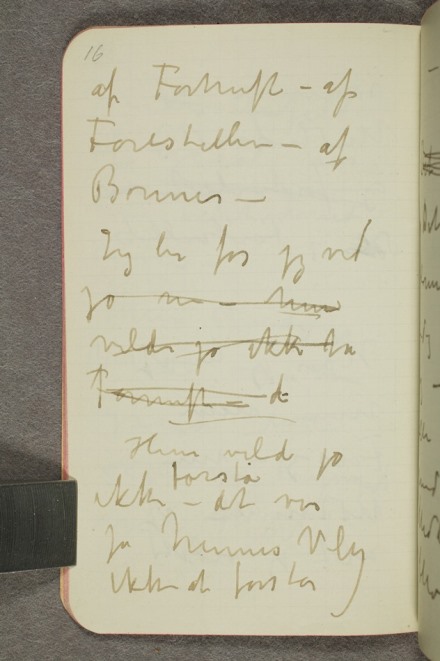 16
af Fornuft – af
Forestillen – af
Bonner –
Jeg ler for jeg ved
jo nu – hun
vilde jo ikke ha
Fornuft – d
Hun vilde jo
ikke forstå – det var
jo hennes Valg
ikke at forstå